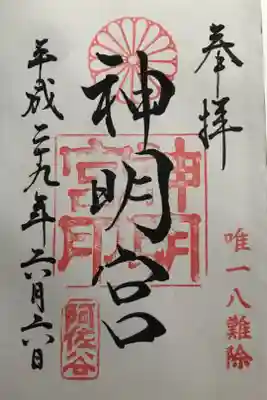 奉拝
唯一八難除
神明宮
神明宮
阿佐谷
平成二九年六月六日